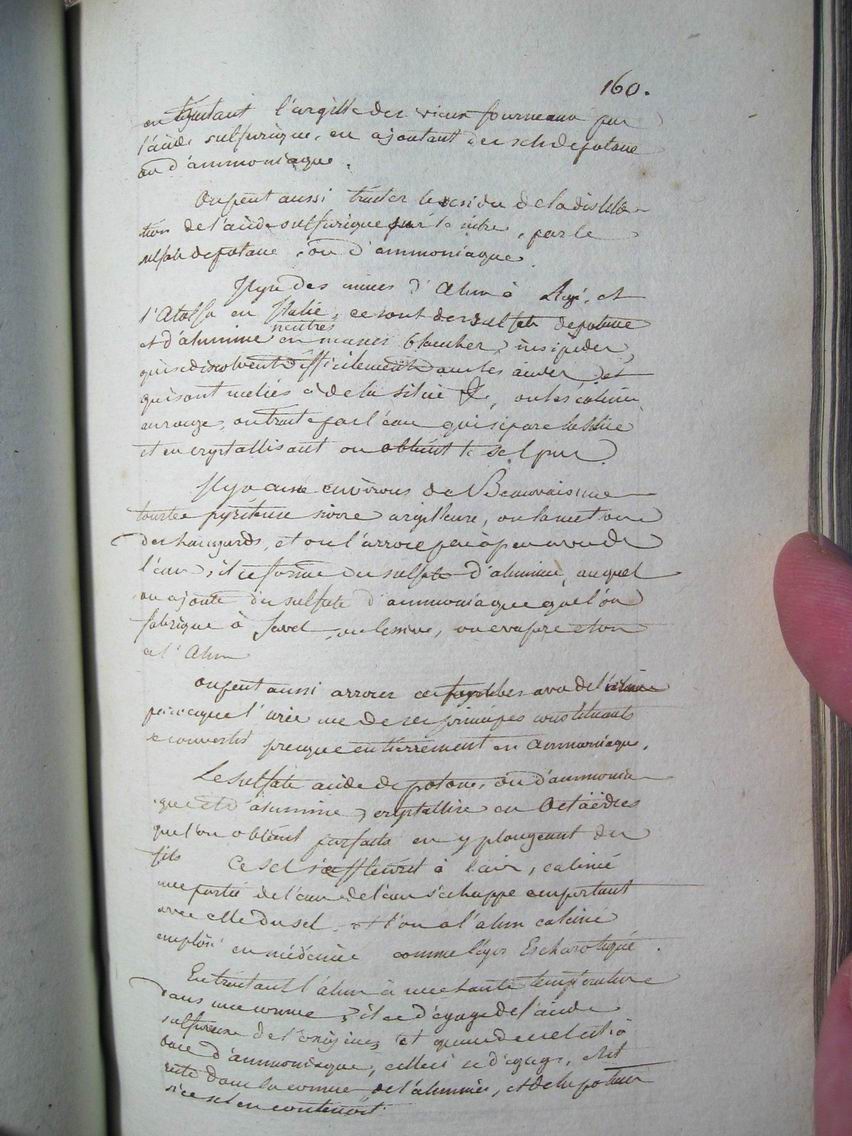 160.
en traitant l'argille des vieux fourneaux par
l'acide sulfurique, en ajoutant des sels de potasse
ou d'ammoniaque.
On peut aussi traiter le residu de la distilla-
tion de l'acide sulfurique sur le nitre, par le
sulfate de potasse, ou d'ammoniaque.
Il y a des mines d'Alun à et
l'A en Italie, ce sont des sulfate de potasse
et d'alumine neutres en masses blanches, insipides,
qui se dissolvent difficilement dans les acides, et
qui sont meliés à de la silice &, on les calcine
au rouge, on traite par l'eau qui sépare la silice
et en crystallisant on obtient le sel pur.
Il y a aux environs de Beauvais une
tourbe pyriteuse noire argilleuse, on la met sous
des hangards, et on l'arrose peu à peu avec de
l'eau, il se forme du sulfate d'alumine, auquel
on ajoute du sulfate d'ammoniaque que l'on
fabrique à Javel, on lessive, on evapore et on
a l'Alun
on peut aussi arroser ces tourbes avec de l'urine
parceque l'urée un de ses principes constituants
se convertit presque entierrement en ammoniaque.
Le sulfate acide de potasse, ou d'ammonia-
que et d'alumine, crystallise en Octaëdres
que l'on obtient parfaits en y plongeant des
fils Ce sel s'effleurit à l'air, calciné
une partie de l'eau de l'eau s'echappe emportant
avec elle du sel, et l'on a l'alun calciné
emploié en médecine comme léger Escharotique.
En traitant l'alun à une haute température
dans une cornue, il se dégage de l'acide
sulfureux de l'oxigène, et quand ce sel est à
base d'ammoniaque, celleci se dégage, et il
reste dans la cornue de l'alumine, et de la potasse
si ce sel en contenoit.